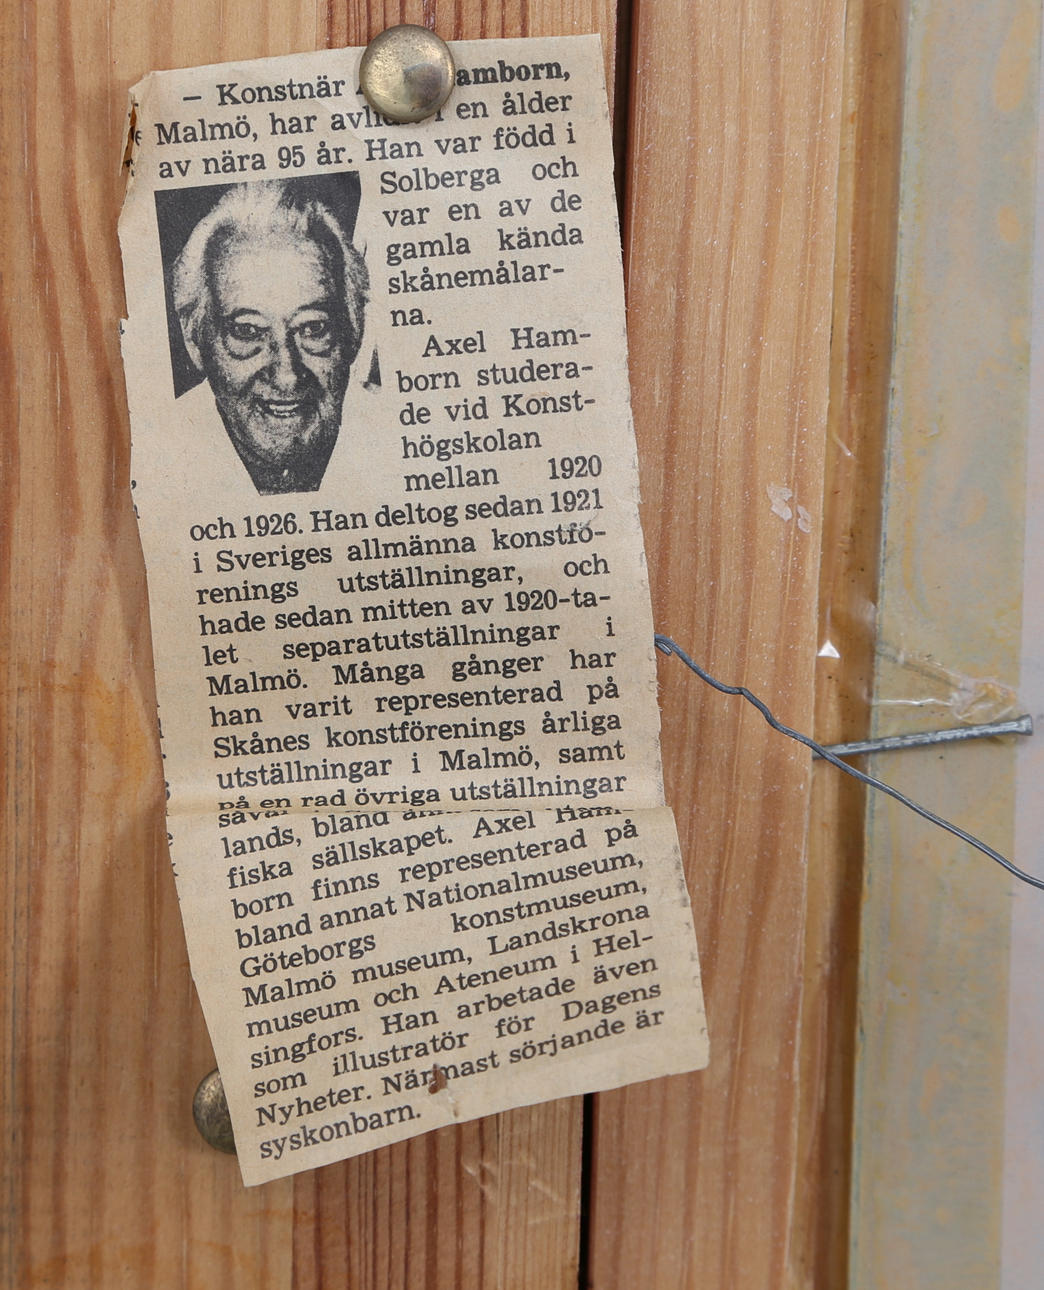 – Konstnär amborn,
Malmö, har en ålder
av nära 95 år. Han var född i
Solberga och
var en av de
gamla kända
skånemålar-
na.
Axel Ham-
born studera-
de vid Konst-
högskolan
mellan 1920
och 1926. Han deltog sedan 1921
i Sveriges allmänna konstfö-
renings utställningar, och
hade sedan mitten av 1920-ta-
let separatutställningar i
Malmö. Många gånger har
han varit representerad på
Skånes konstförenings årliga
utställningar i Malmö, samt
på en rad övriga utställningar
lands, bland
fiska sällskapet. Axel Ham-
born finns representerad på
bland annat Nationalmuseum,
Göteborgs konstmuseum,
Malmö museum, Landskrona
museum och Ateneum i Hel-
singfors. Han arbetade även
som illustratör för Dagens
Nyheter. Närmast sörjande är
syskonbarn.